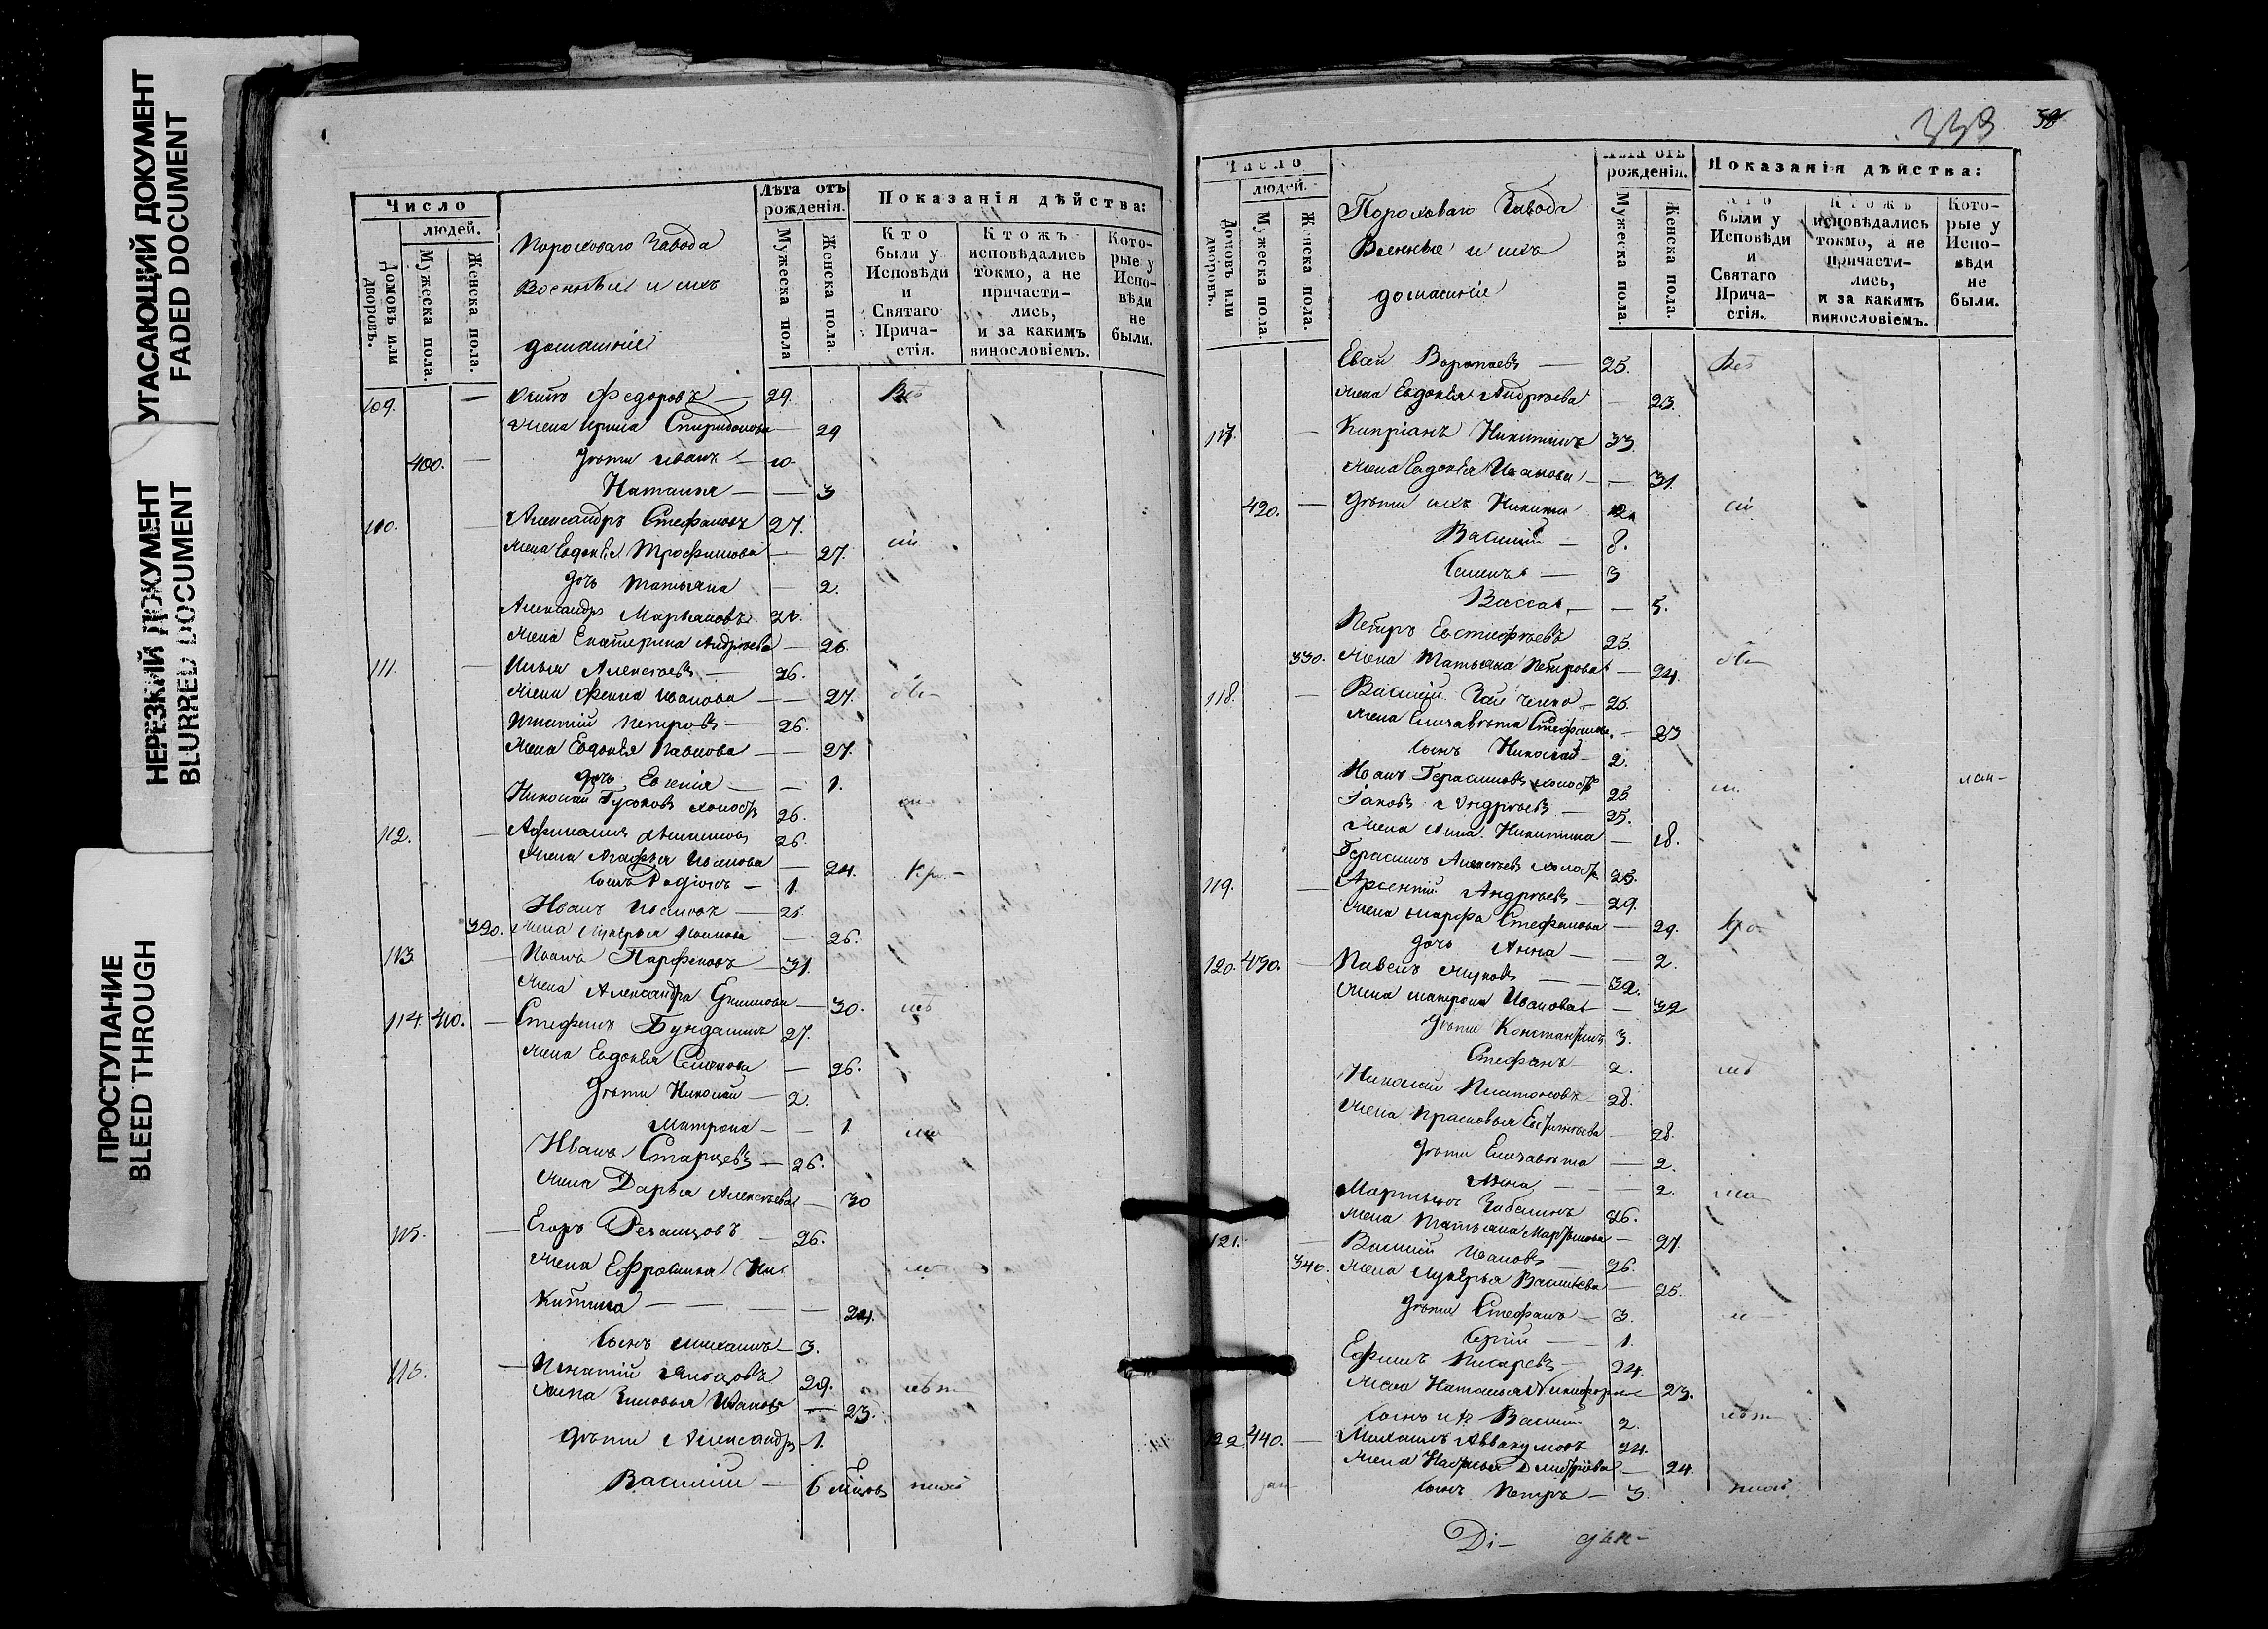 УГАСАЮЩИЙ ДОКУМЕНТ
FADED DOCUMENT
НЕРЕЗКИЙ ДОКУМЕНТ
BLURRED DOCUMENT
ПРОСТУПАНИЕ
BLEED THROUGH
Число
людей.
Домовъ или дворовъ.
Мужеска пола.
Женска пола.
Пороховаго Завода
Военные и ихъ
домашніе
Лѣта отъ рожденія.
Мужеска пола
Женска пола.
Показанія дѣйства:
Кто были у Исповѣди и Святаго Причастія.
Ктожъ исповѣдались токмо, а не причастились, и за какимъ винословіемъ.
Которые у Исповѣди не были.
109. — Федоровъ — 29.
Жена Ирина Спиридонова — 29
400. — Дѣти Иванъ — 10.
Наталья — — 3
110. — Александръ Стефановъ 27.
Жена Евдокія Трофимова — 27.
дочь Татьяна — 2.
Александръ Марьяновъ
Жена Екатерина Андреева — 26.
111. — Илья Алексѣевъ — 26.
Жена Фекла Иванова — — 27.
Игнатій Петровъ — 26.
Жена Евдокія Павлова — — 27.
дочь Евгенія — — 1.
Николай Гусаковъ холостъ 26.
112. — 26.
Жена Агафья Иванова — 24.
сынъ Родіонъ — 1.
Иванъ Ивановъ — 25
390. Жена Лукерья — 26.
113 — Иванъ Парфеновъ — 31.
Жена Александра Екимова — 30.
114. 410. — Стефанъ Бундашинъ 27.
Жена Евдокія Семенова — 26.
Дѣти Николай — 2.
Матрона — — 1.
Иванъ Старцевъ — 26.
Жена Дарья Алексѣева — 30
115. — Егоръ — 26.
Жена Ефросинья Ни
китина — — — — 24.
Сынъ Михаилъ — 3.
116. — Игнатій 29.
Жена Зиновья Иванова — 23.
Дѣти Александръ — 1.
Василій — 6 мѣцовъ
339
38
Число
людей.
Домовъ или дворовъ.
Мужеска пола.
Женска пола.
Пороховаго Завода
Военные и ихъ
домашніе
Лѣта отъ рожденія.
Мужеска пола.
Женска пола.
Показанія дѣйства:
Кто были у Исповѣди и Святаго Причастія.
Ктожъ исповѣдались токмо, а не причастились, и за какимъ винословіемъ.
Которые у Исповѣди не были.
Евсей Воропаевъ — 25.
Жена Евдокія Андреева — 23.
117. — Кипріанъ Никитинъ 33.
Жена Евдокія Иванова — — 31.
420. — Дѣти ихъ Никита
Василій — 8.
Семенъ — 3
Васса — — 5.
Петръ Евстифѣевъ 25.
330. Жена Татьяна Петрова — 24.
118. — Василій — 25.
Жена Елизавета Стефанова — 23
сынъ Николай — 2.
Иванъ Герасимовъ холостъ 25
Іаковъ Андреевъ — 25.
Жена Анна Никитина — 18.
Герасимъ Алексѣевъ холостъ 25.
119. — Арсентій Андреевъ — 29.
Жена Марфа Стефанова — 29.
дочь Анна — — 2.
120. 430. — Павелъ Жуковъ — — 32.
Жена Матрона Иванова — 32
Дѣти Константинъ 3.
Стефанъ — 2.
Николай Платоновъ — 28.
Жена Прасковья — 28.
Дѣти Елизавета — 2.
Анна — — — 2.
Мартынъ 26.
Жена Татьяна Мартынова — 27.
121. — Василій Ивановъ — 26.
340. Жена Лукерья Васильева — 25.
Дѣти Стефанъ — 3.
Сергій — 1.
Ефимъ Писаревъ — 24.
Жена Наталья Никифорова 23.
сынъ ихъ Василій 2.
122. 440. — Михаилъ Аввакумовъ 24.
Жена Наталья Дмитріева — 24.
сынъ Петръ — 3.